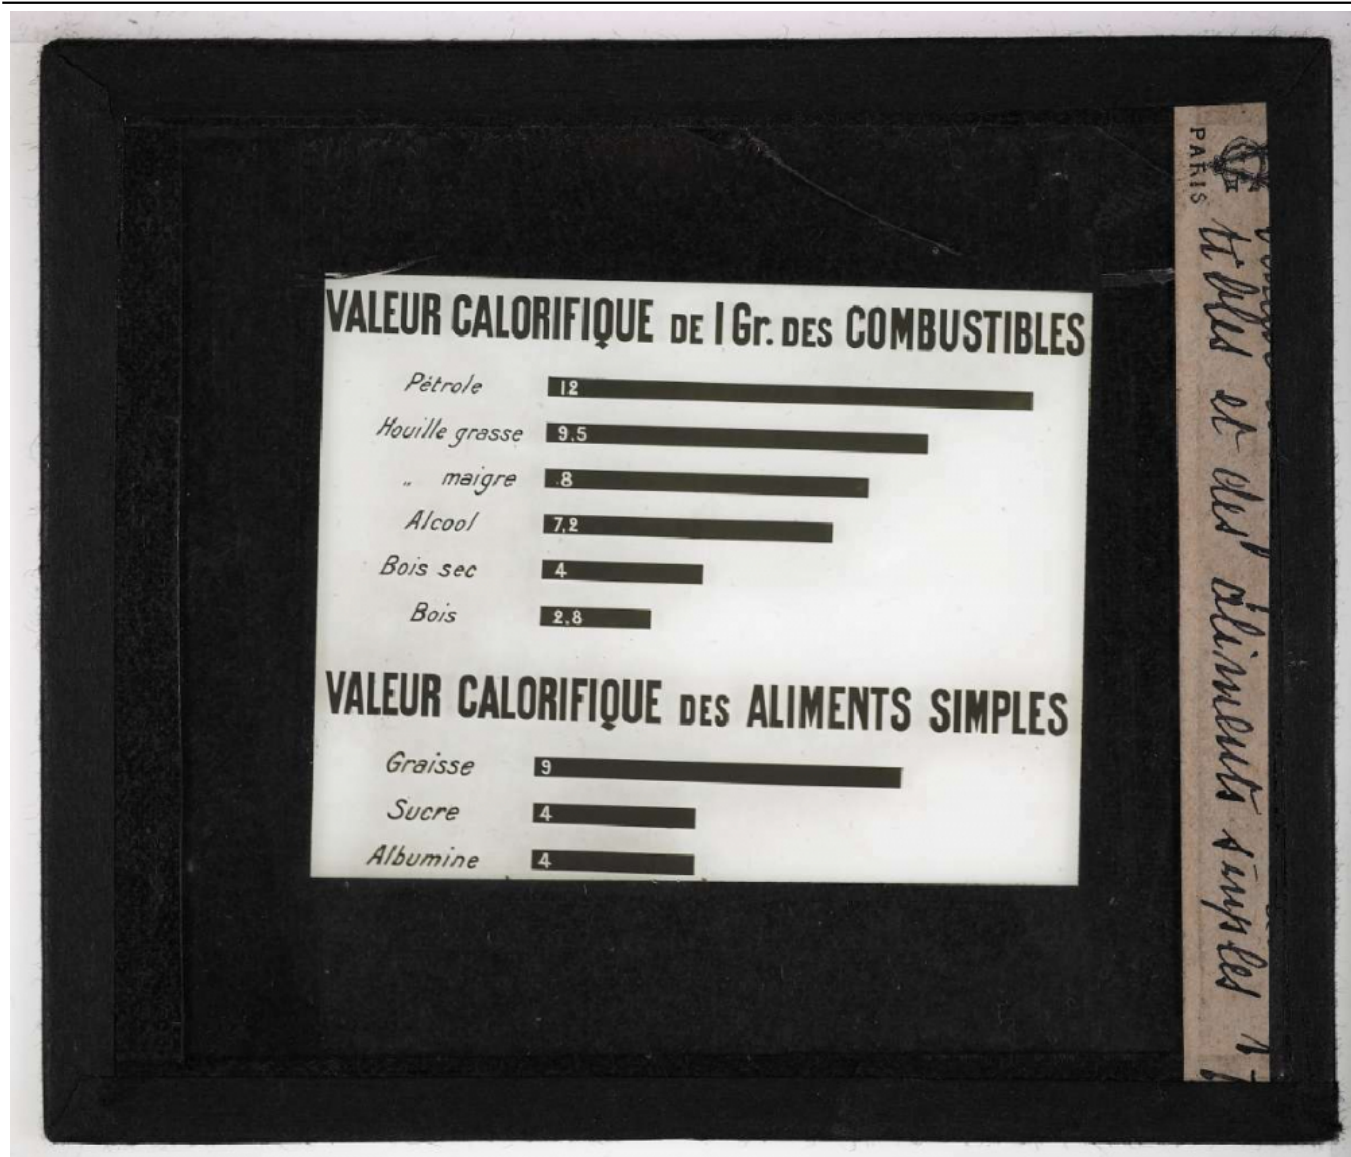 VALEUR CALORIFIQUE DE 1 Gr. DES COMBUSTIBLES
Pétrole 12
Houille grasse 9.5
„ maigre 8
Alcool 7,2
Bois sec 4
Bois 2,8
VALEUR CALORIFIQUE DES ALIMENTS SIMPLES
Graisse 9
Sucre 4
Albumine 4
PARIS
tibles et des aliments simples